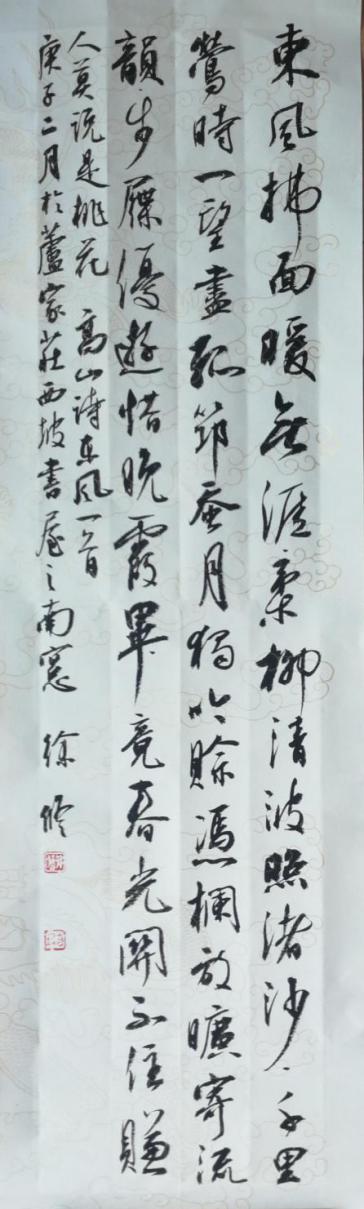 東風拂面暖無涯柳清波照渚沙千里
鶯時一望盡孤筇蚕月獨吟賒憑欄放曠寄流
韻步屧優遊惜晚霞畢竟春光關不住賺
人莫說是桃花 高山詩東風一首
庚子二月於蘆家莊西坡書屋之南窓 徐